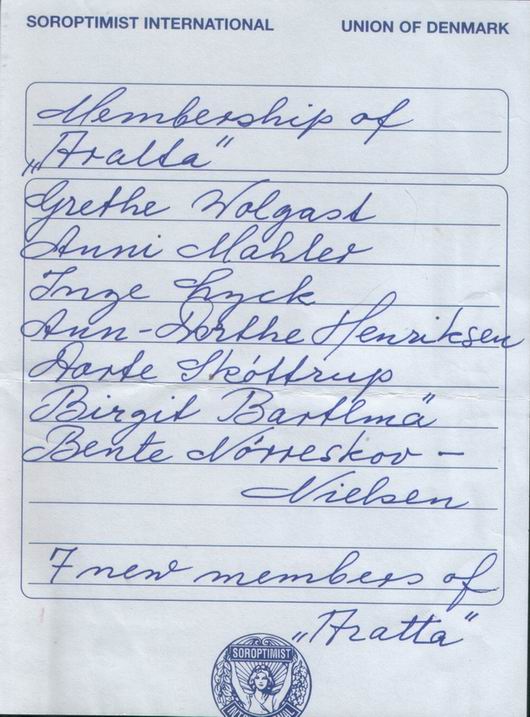 SOROPTIMIST INTERNATIONAL UNION OF DENMARK
Membership of
„Aratta"
Grethe Wolgast
Anni Mahler
Inge Lyck
Ann-Dorthe Henriksen
Dorte Skóttrup
Birgit Bartlmä
Bente Nórreskov -
Nielsen
7 new members of
„Aratta"
SOROPTIMIST